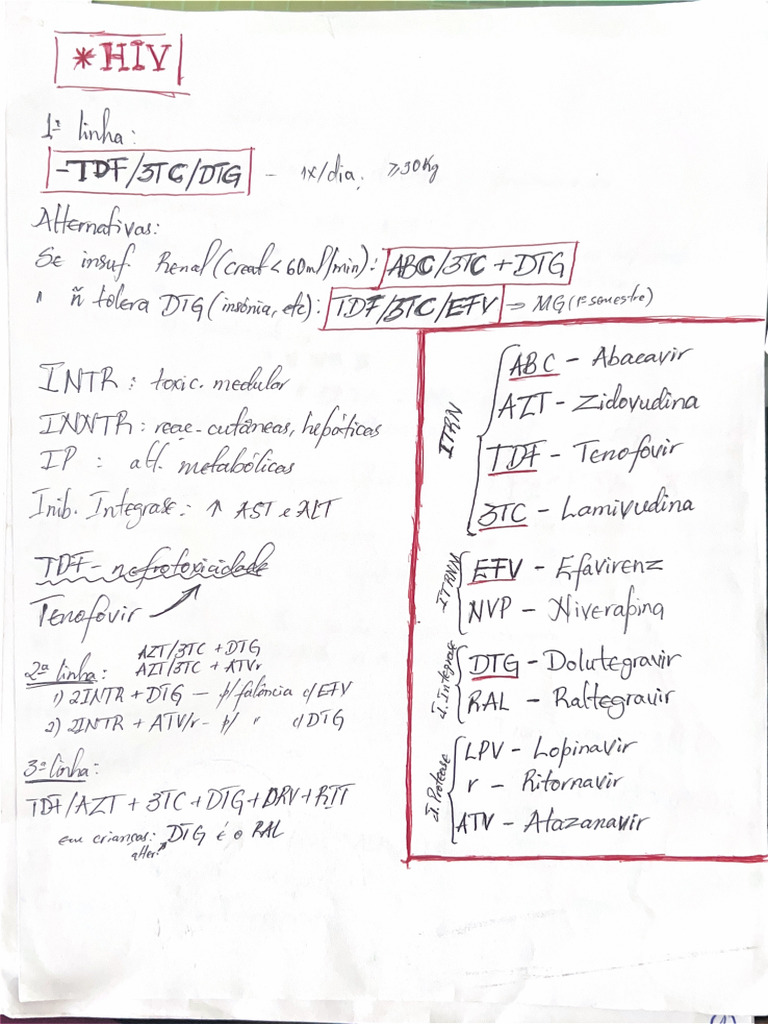 *HIV
1ª linha:
-TDF/3TC/DTG - 1x/dia; ≥30Kg
Alternativas:
Se insuf. Renal (creat < 60ml/min): ABC/3TC + DTG
" ñ tolera DTG (insónia, etc): TDF/3TC/EFV => MG (1º semestre)
INTR: toxic. medular
INNTR: reac. cutâneas, hepáticas
IP: alt. metabólicas
Inib. Integrase: ↑ AST e ALT
TDF - nefrotoxicidade
Tenofovir
2ª linha:
AZT/3TC + DTG
AZT/3TC + ATVr
1) 2INTR + DTG - p/ falância c/ EFV
2) 2INTR + ATV/r - p/ " c/ DTG
3ª linha:
TDF/AZT + 3TC + DTG + DRV + RIT
em crianças: DTG é o RAL
alter.
ITRN
ABC - Abacavir
AZT - Zidovudina
TDF - Tenofovir
3TC - Lamivudina
ITRNN
EFV - Efavirenz
NVP - Niverapina
I. Integrase
DTG - Dolutegravir
RAL - Raltegravir
I. Protease
LPV - Lopinavir
r - Ritornavir
ATV - Atazanavir